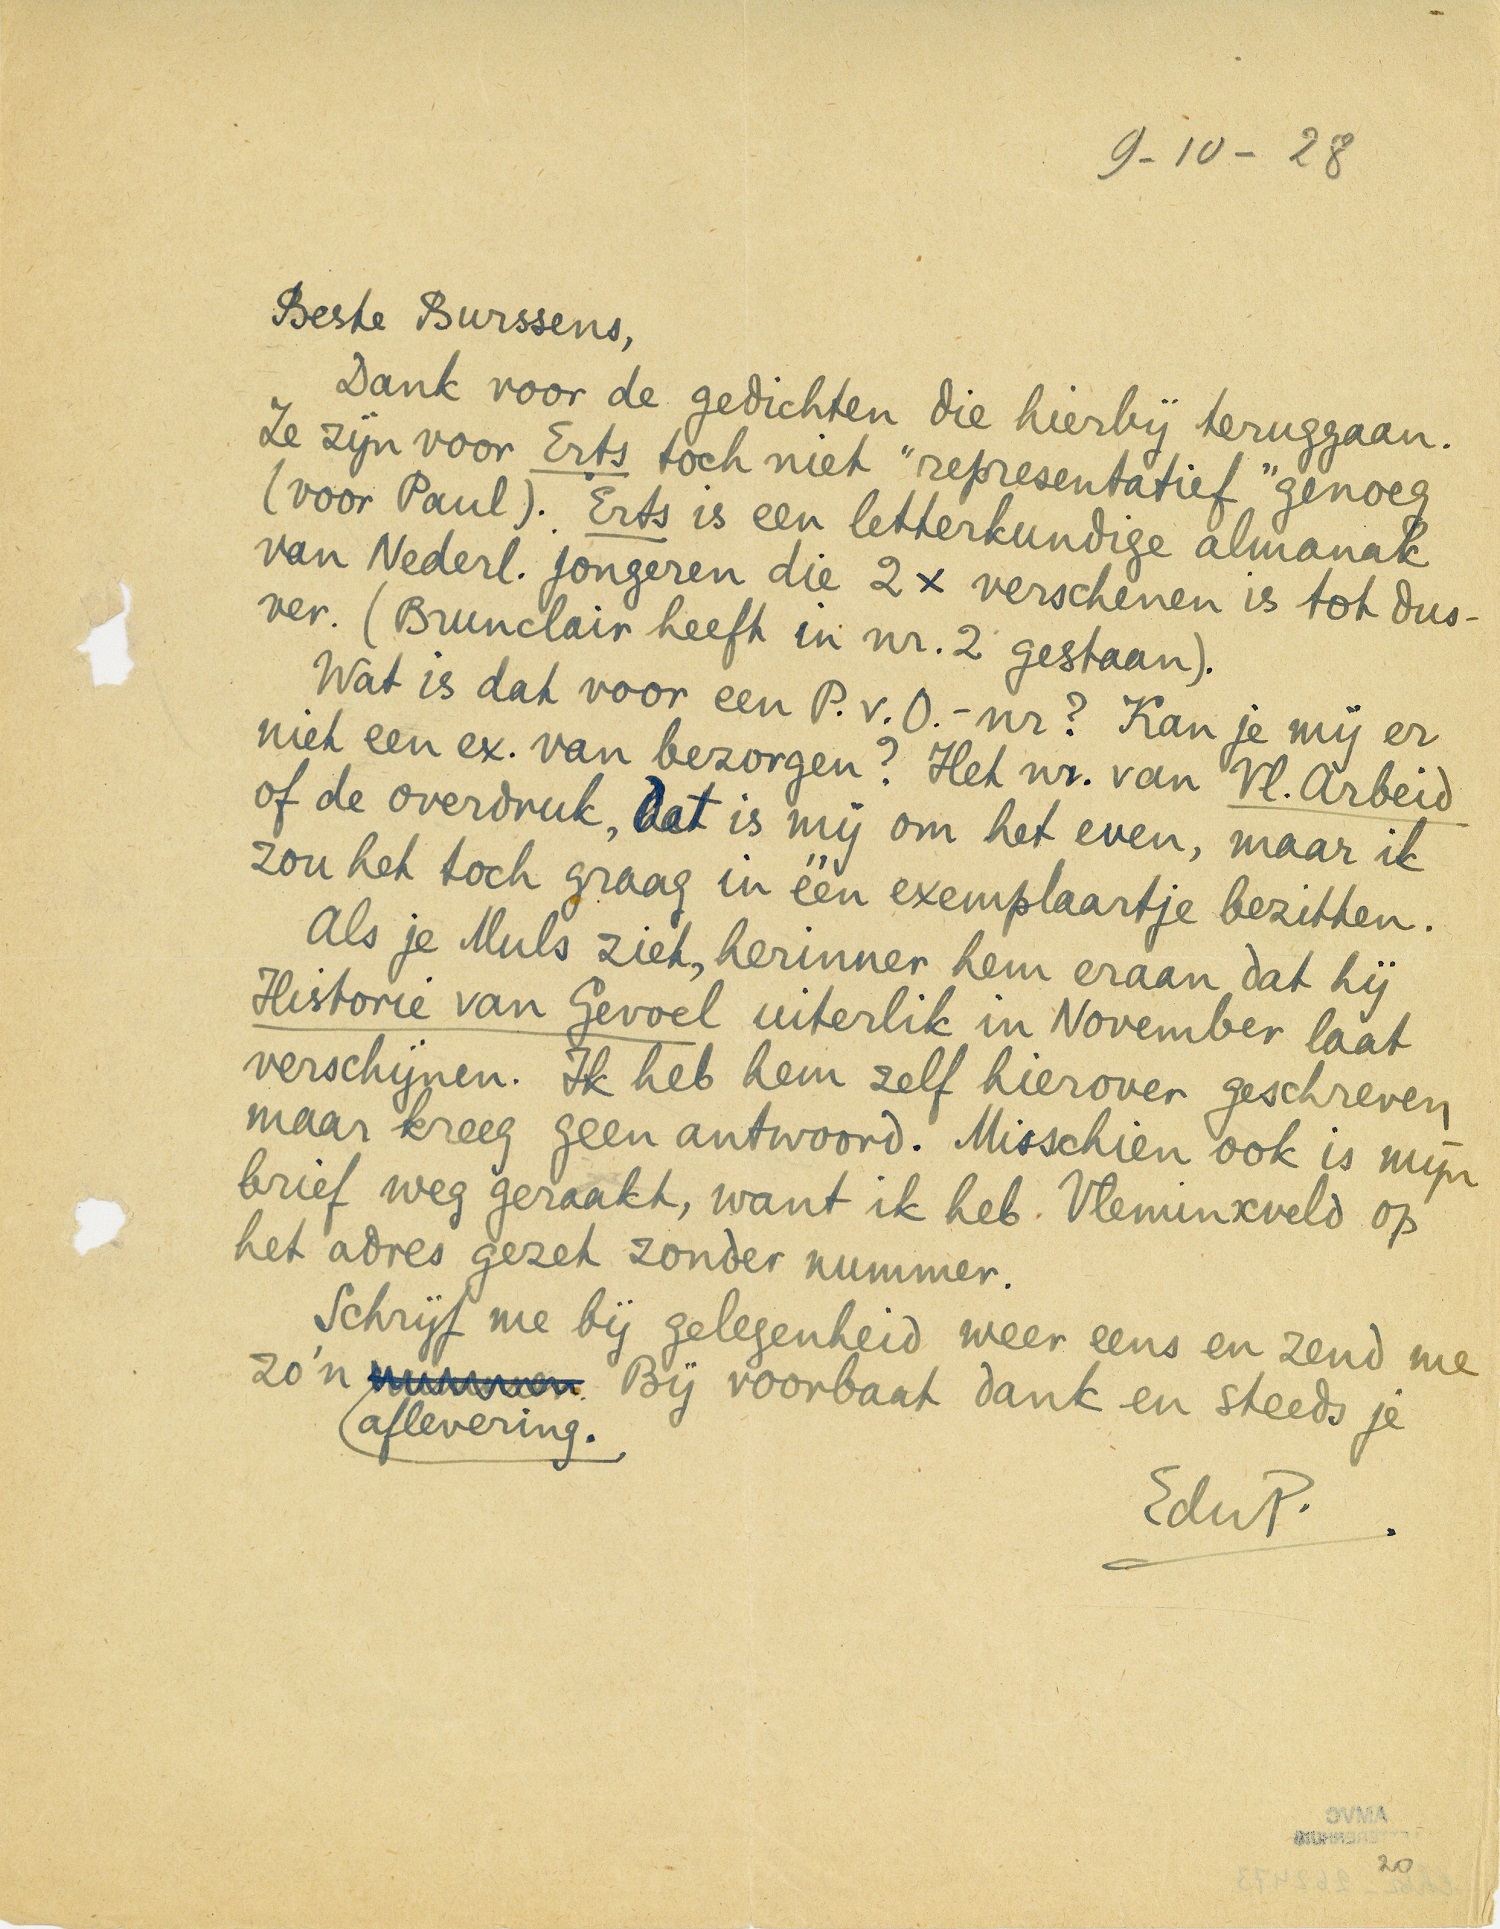 9-10-28
Beste Burssens,
Dank voor de gedichten die hierbij teruggaan.
Ze zijn voor Erts toch niet "representatief" genoeg
(voor Paul). Erts is een letterkundige almanak
van Nederl. jongeren die 2 x verschenen is tot dus-
ver. (Brunclair heeft in nr. 2 gestaan).
Wat is dat voor een P.v.O.-nr? Kan je mij er
niet een ex. van bezorgen? Het nr. van Vl. Arbeid
of de overdruk, dat is mij om het even, maar ik
zou het toch graag in één exemplaartje bezitten.
Als je Muls ziet, herinner hem eraan dat hij
Historie van Gevoel uiterlik in November laat
verschijnen. Ik heb hem zelf hierover geschreven,
maar kreeg geen antwoord. Misschien ook is mijn
brief weg geraakt, want ik heb Vleminxveld op
het adres gezet zonder nummer.
Schrijf me bij gelegenheid weer eens en zend me
zo'n nummer. Bij voorbaat dank en steeds je
aflevering.
EduP.
AMVC
LETTERENHUIS
20